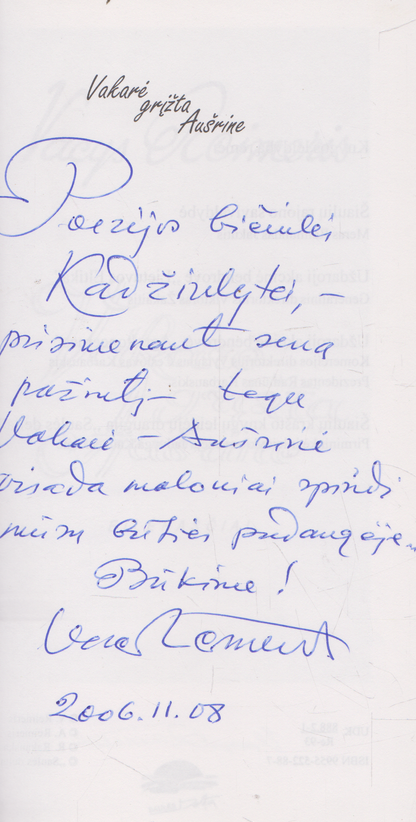 Vakarė
grįžta
Aušrine
Poezijos bičiulei
Kadžiulytei, –
prisimenant seną
pažintį – tegu
Vakarė – Aušrinė
visada maloniai spindi
mūsų būties padangėje...
Būkime!
2006.11.08